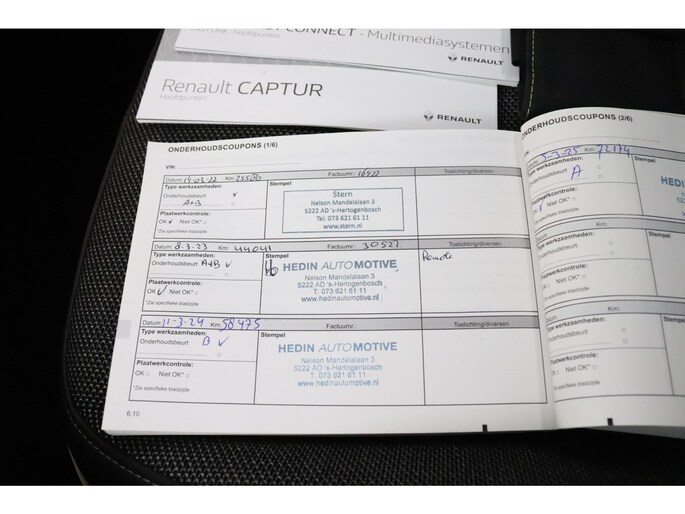 CONNECT - Multimediasystemen
Hoofdpunten
RENAULT
Renault CAPTUR
Hoofdpunten
RENAULT
ONDERHOUDSCOUPONS (1/6)
VIN:
Datum: 14-03-22 Km: 25500 Factuurnr.: 16922 Toelichting/diversen
Type werkzaamheden: Stempel
Onderhoudsbeurt
A+B
Plaatwerkcontrole:
OK Niet OK*
*Zie specifieke bladzijde
Stern
Nelson Mandelalaan 3
5222 AD 's-Hertogenbosch
Tel. 073 621 61 11
www.stern.nl
Datum: 8-3-23 Km: 44041 Factuurnr.: 30527 Toelichting/diversen
Type werkzaamheden: Stempel
Onderhoudsbeurt A+B
Plaatwerkcontrole:
OK Niet OK*
*Zie specifieke bladzijde
HEDIN AUTOMOTIVE
Nelson Mandelalaan 3
5222 AD 's-Hertogenbosch
T. 073 621 61 11
www.hedinautomotive.nl
Datum: 11-3-24 Km: 58475 Factuurnr.: Toelichting/diversen
Type werkzaamheden: Stempel
Onderhoudsbeurt B
Plaatwerkcontrole:
OK Niet OK*
*Zie specifieke bladzijde
HEDIN AUTOMOTIVE
Nelson Mandelalaan 3
5222 AD 's-Hertogenbosch
T. 073 621 61 11
www.hedinautomotive.nl
6.10
ONDERHOUDSCOUPONS (2/6)
5-3-25 Km: 72174
Type werkzaamheden:
Onderhoudsbeurt
A
Niet OK*
*Zie specifieke bladzijde
Datum:
Type werkzaamheden:
Onderhoudsbeurt
Plaatwerkcontrole:
OK Niet OK*
*Zie specifieke bladzijde
Datum:
Type werkzaamheden:
Onderhoudsbeurt
Plaatwerkcontrole:
OK Niet OK*
*Zie specifieke bladzijde